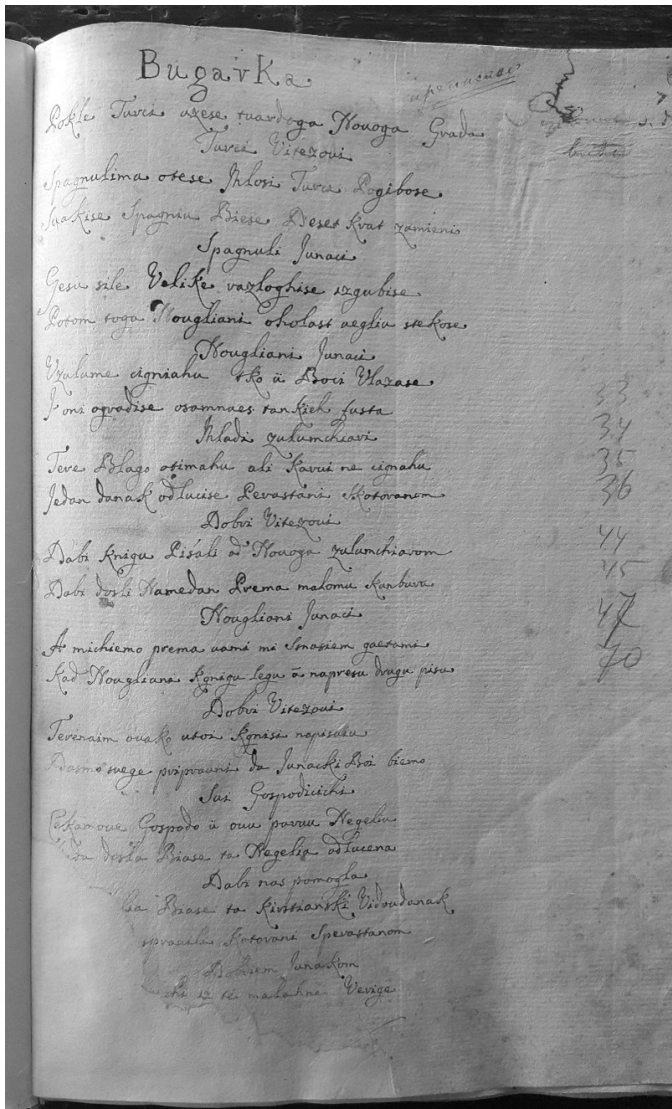 Bugarka
Pokle Turci uzese tuardoga Nouoga Grada
Turci Vitezoui
Spagnulima otese Mlosi Turci Pogibose
Suakise Spagniu Biese Deset krat zamieni
Spagnuli Junaci
Gesu sile Velike razloghise izgubise
Potom toga Nougliani oholast uegliu stekose
Nougliani Junaci
Vzulume cigniahu tko ü Boci Vlazase
J oni ogradise osamnaes tankieh fusta
Mladi zulumchiari
Teve Blago otimahu ali karui ne cignahu
Jedan danak odlucise Perastani skotoranom
Dobri Vitezoui
Dabi knigu Pisali od Nouoga zulumchiarom
Dabi dosli Namedan Prema malomu
Nougliani Junaci
A michiemo prema uami mi Smasiem gaetami
Kad Nougliani kgnigu legu ä napresu drugu pisu
Dobri Vitezoui
Terenaim ouako utoi kgnisi napisasu
Dasmo suege pripraüni da Junacki Boi biemo
Susi Gospodicichi
Cekamoue Gospodo ü ouu paruu Negeliu
dosla Biase ta Negelia odlucena
Dabi nas pomogla
Biase ta kirstianski Vidoudanak
Spevastanom
Dobriem Junakom
iz te malahne Verige
33
34
35
36
44
45
47
70